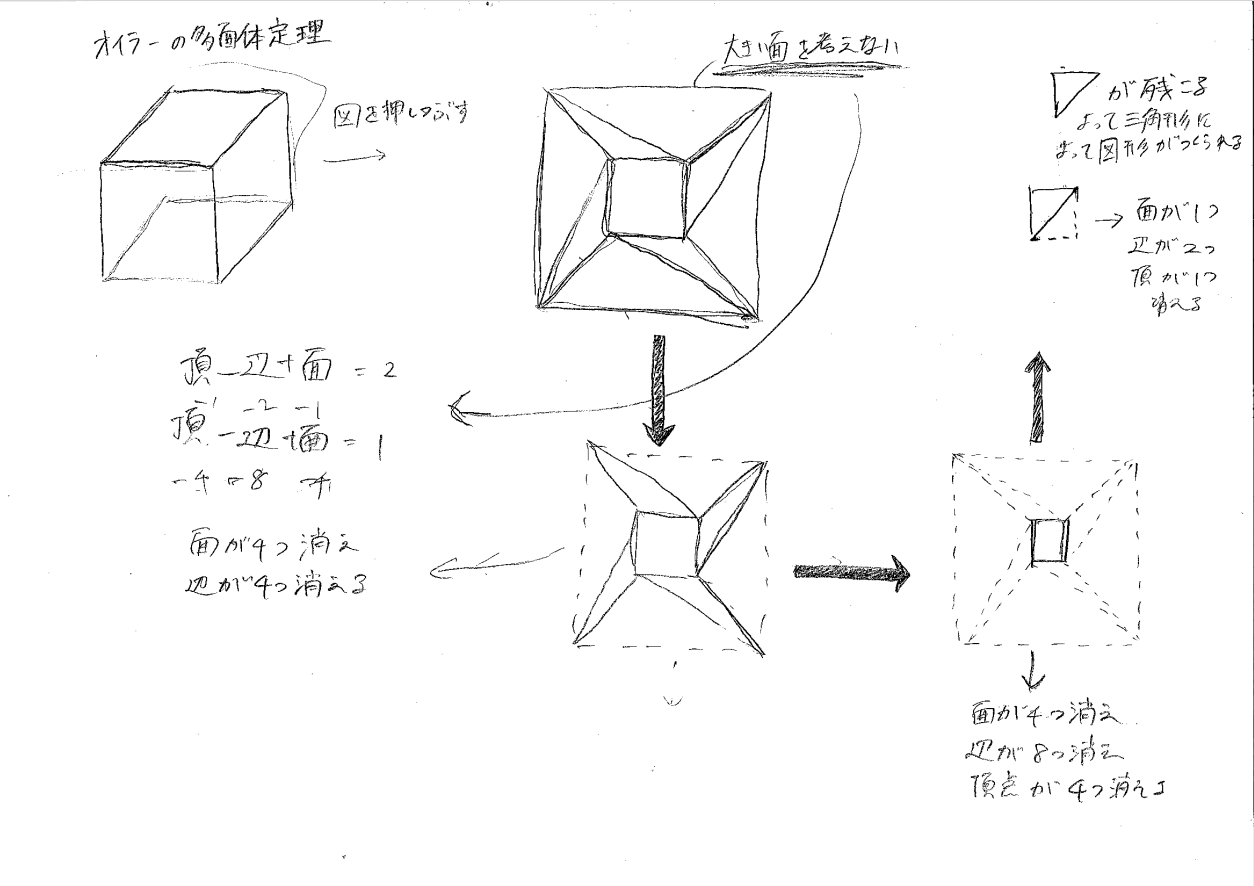 オイラーの多面体定理
図を押しつぶす
大きい面を考えない
が残こる
よって三角形に
よって図形がつくられる
→ 面が1つ
辺が2つ
頂が1つ
消える
頂-辺+面 = 2
-2 -1
頂-辺+面 = 1
-4 -8 -4
面が4つ消え
辺が4つ消える
面が4つ消え
辺が8つ消え
頂点が4つ消える